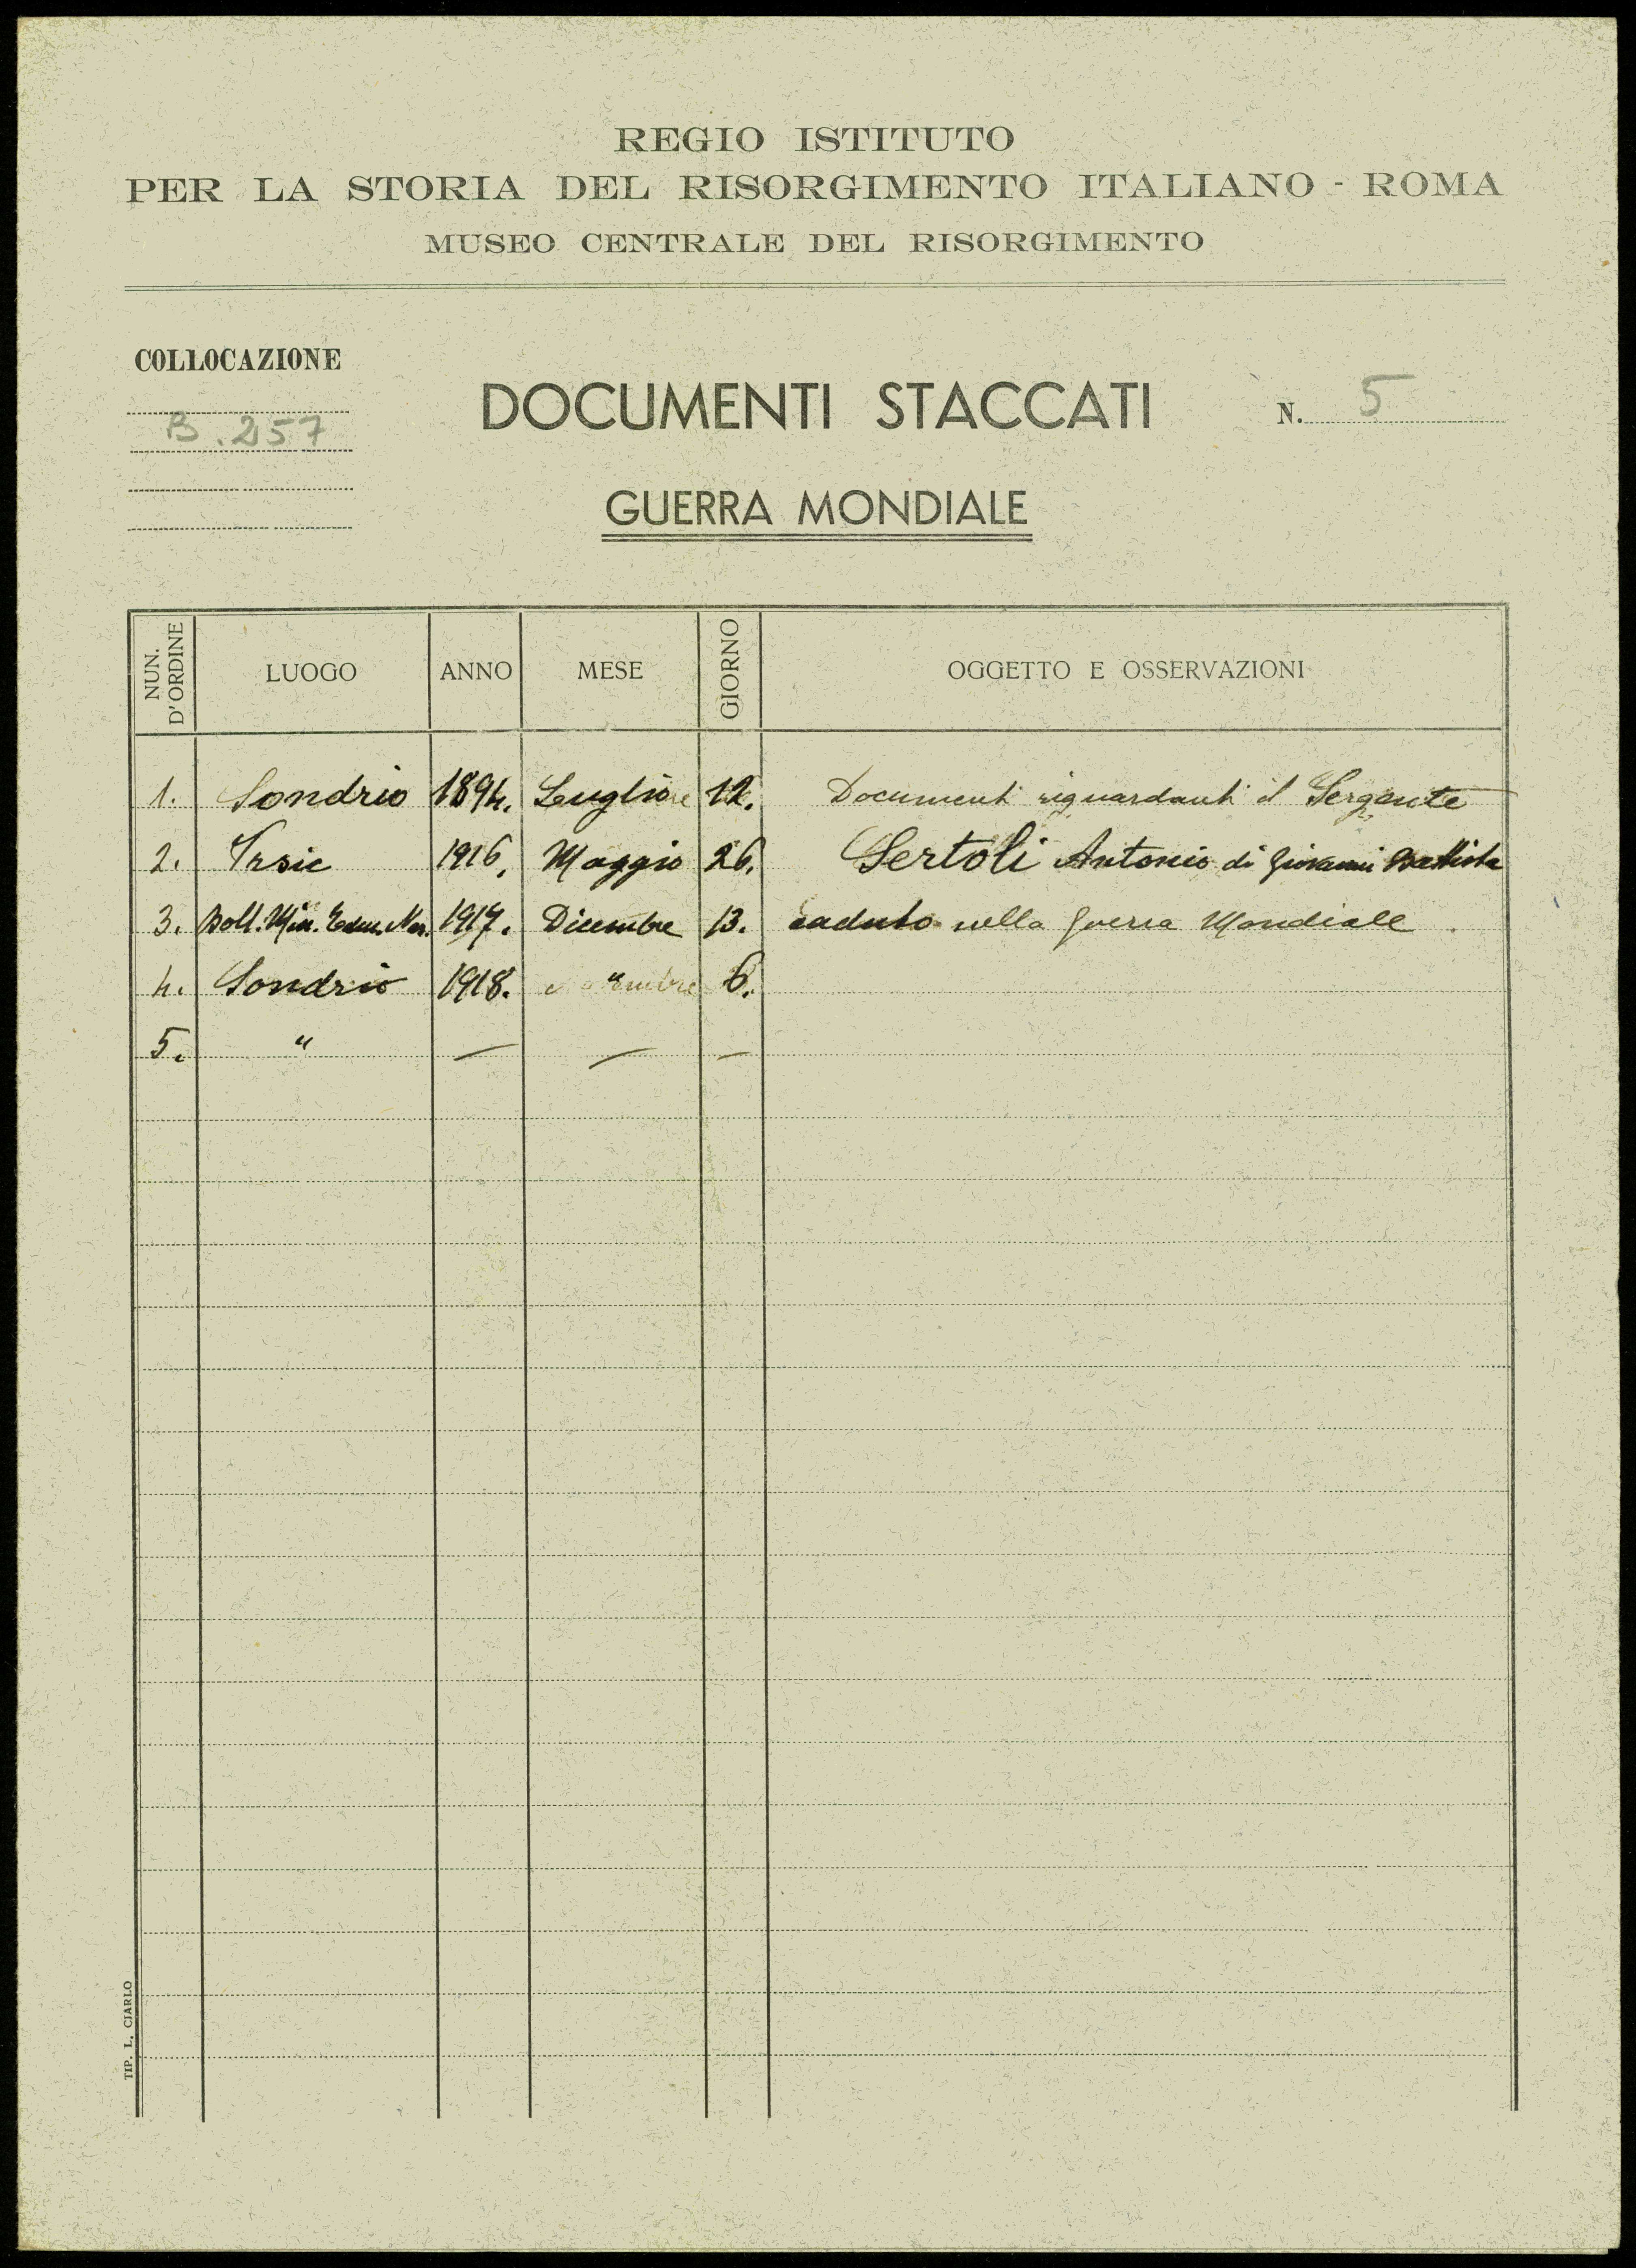 REGIO ISTITUTO
PER LA STORIA DEL RISORGIMENTO ITALIANO - ROMA
MUSEO CENTRALE DEL RISORGIMENTO
COLLOCAZIONE
B. 257
DOCUMENTI STACCATI
N. 5
GUERRA MONDIALE
NUN. D'ORDINE LUOGO ANNO MESE GIORNO OGGETTO E OSSERVAZIONI
1. Sondrio 1894. Luglio 12. Documenti riguardanti il Sergente
2. Vrsic 1916. Maggio 26. Sertoli Antonio di Giovanni Battista
3. Boll. Min. Educ. Naz. 1917. Dicembre 13. caduto nella Guerra Mondiale
4. Sondrio 1918. 6.
5. " — — —
TIP. L. CIARLO